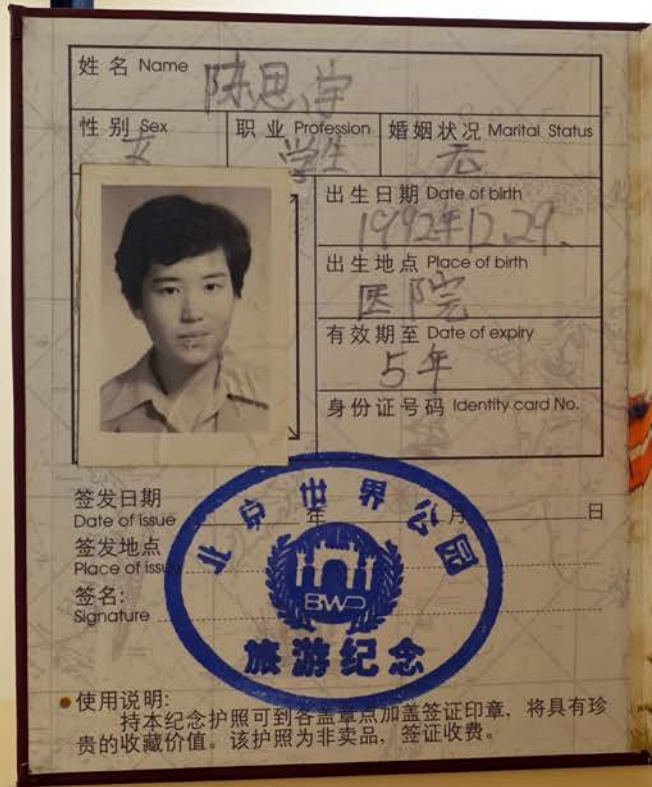 姓名 Name 陈思宇
性别 Sex 职业 Profession 婚姻状况 Marital Status
女 学生 无
出生日期 Date of birth
1992年12.29.
出生地点 Place of birth
医院
有效期至 Date of expiry
5年
身份证号码 Identity card No.
签发日期 年 月 日
Date of issue
签发地点
Place of issue
签名:
Signature
北京世界公园
BWP
旅游纪念
使用说明:
持本纪念护照可到各盖章点加盖签证印章，将具有珍
贵的收藏价值。该护照为非卖品，签证收费。